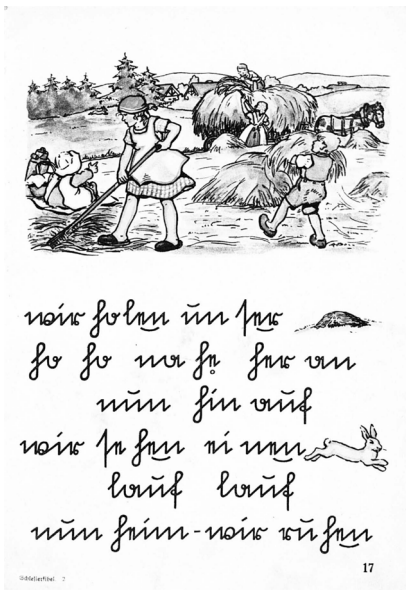 wir ho len un ser
ho ho na he her an
nun hin auf
wir se hen ei nen
lauf lauf
nun heim - wir ru hen
17
Schlesierfibel 2